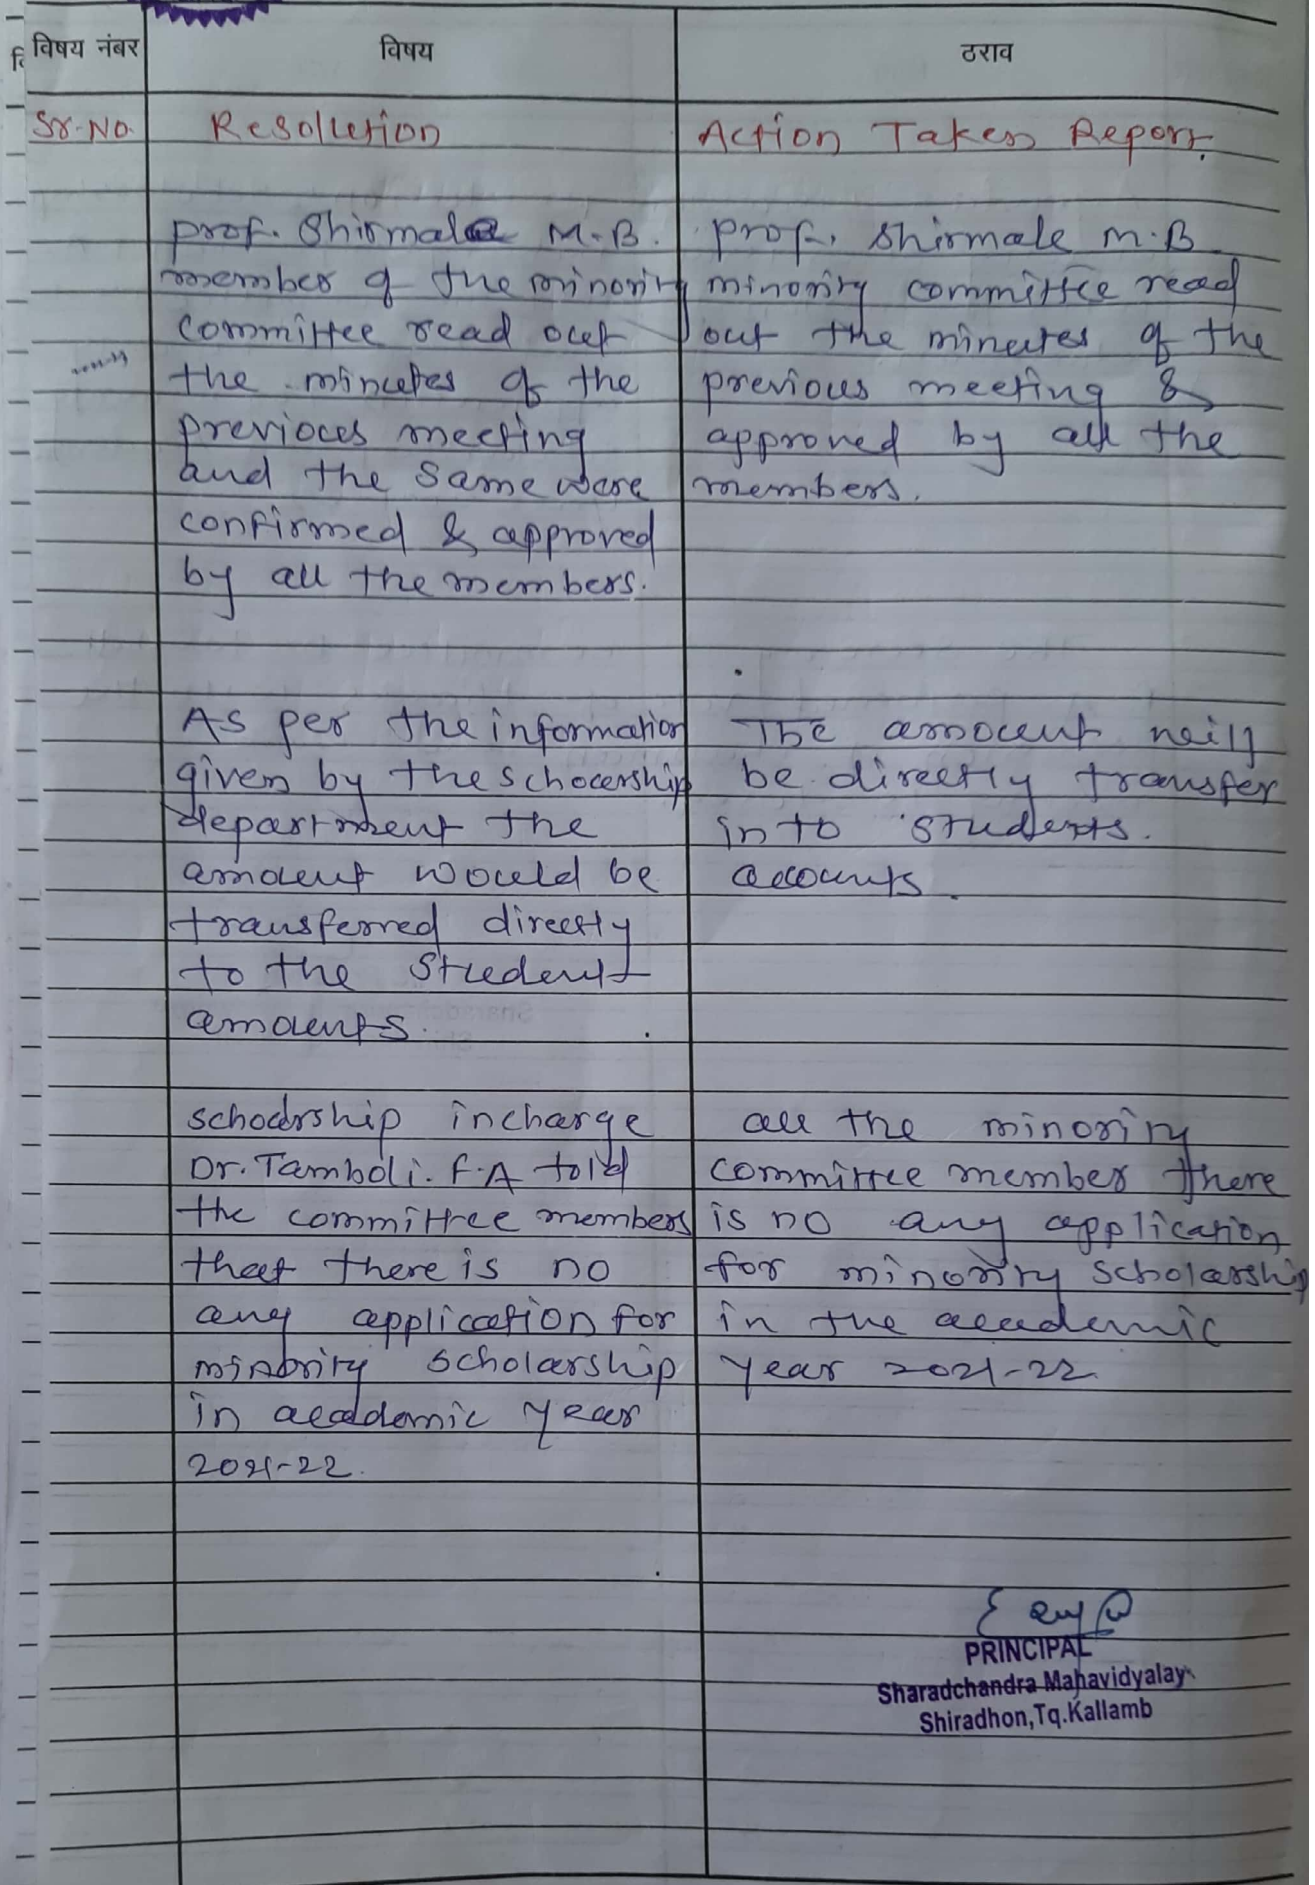 विषय नंबर
विषय
ठराव
Sr.No.
Resolution
Action Taken Report.
prof. Shirmale M.B.
member of the minority
committee read out
the minutes of the
previous meeting
and the same were
confirmed & approved
by all the members.
prof. Shirmale M.B
minority committee read
out the minutes of the
previous meeting &
approved by all the
members.
As per the information
given by the schoarship
department the
amount would be
transferred directly
to the Student
amounts.
The amount
be directly transfer
into students.
accounts.
schoarship incharge
Dr. Tamboli. F.A told
the committee members
that there is no
any application for
minority scholarship
in academic year
2021-22.
all the minority
committee member there
is no any application
for minority scholarship
in the academic
year 2021-22.
PRINCIPAL
Sharadchandra Mahavidyalay
Shiradhon,Tq.Kallamb